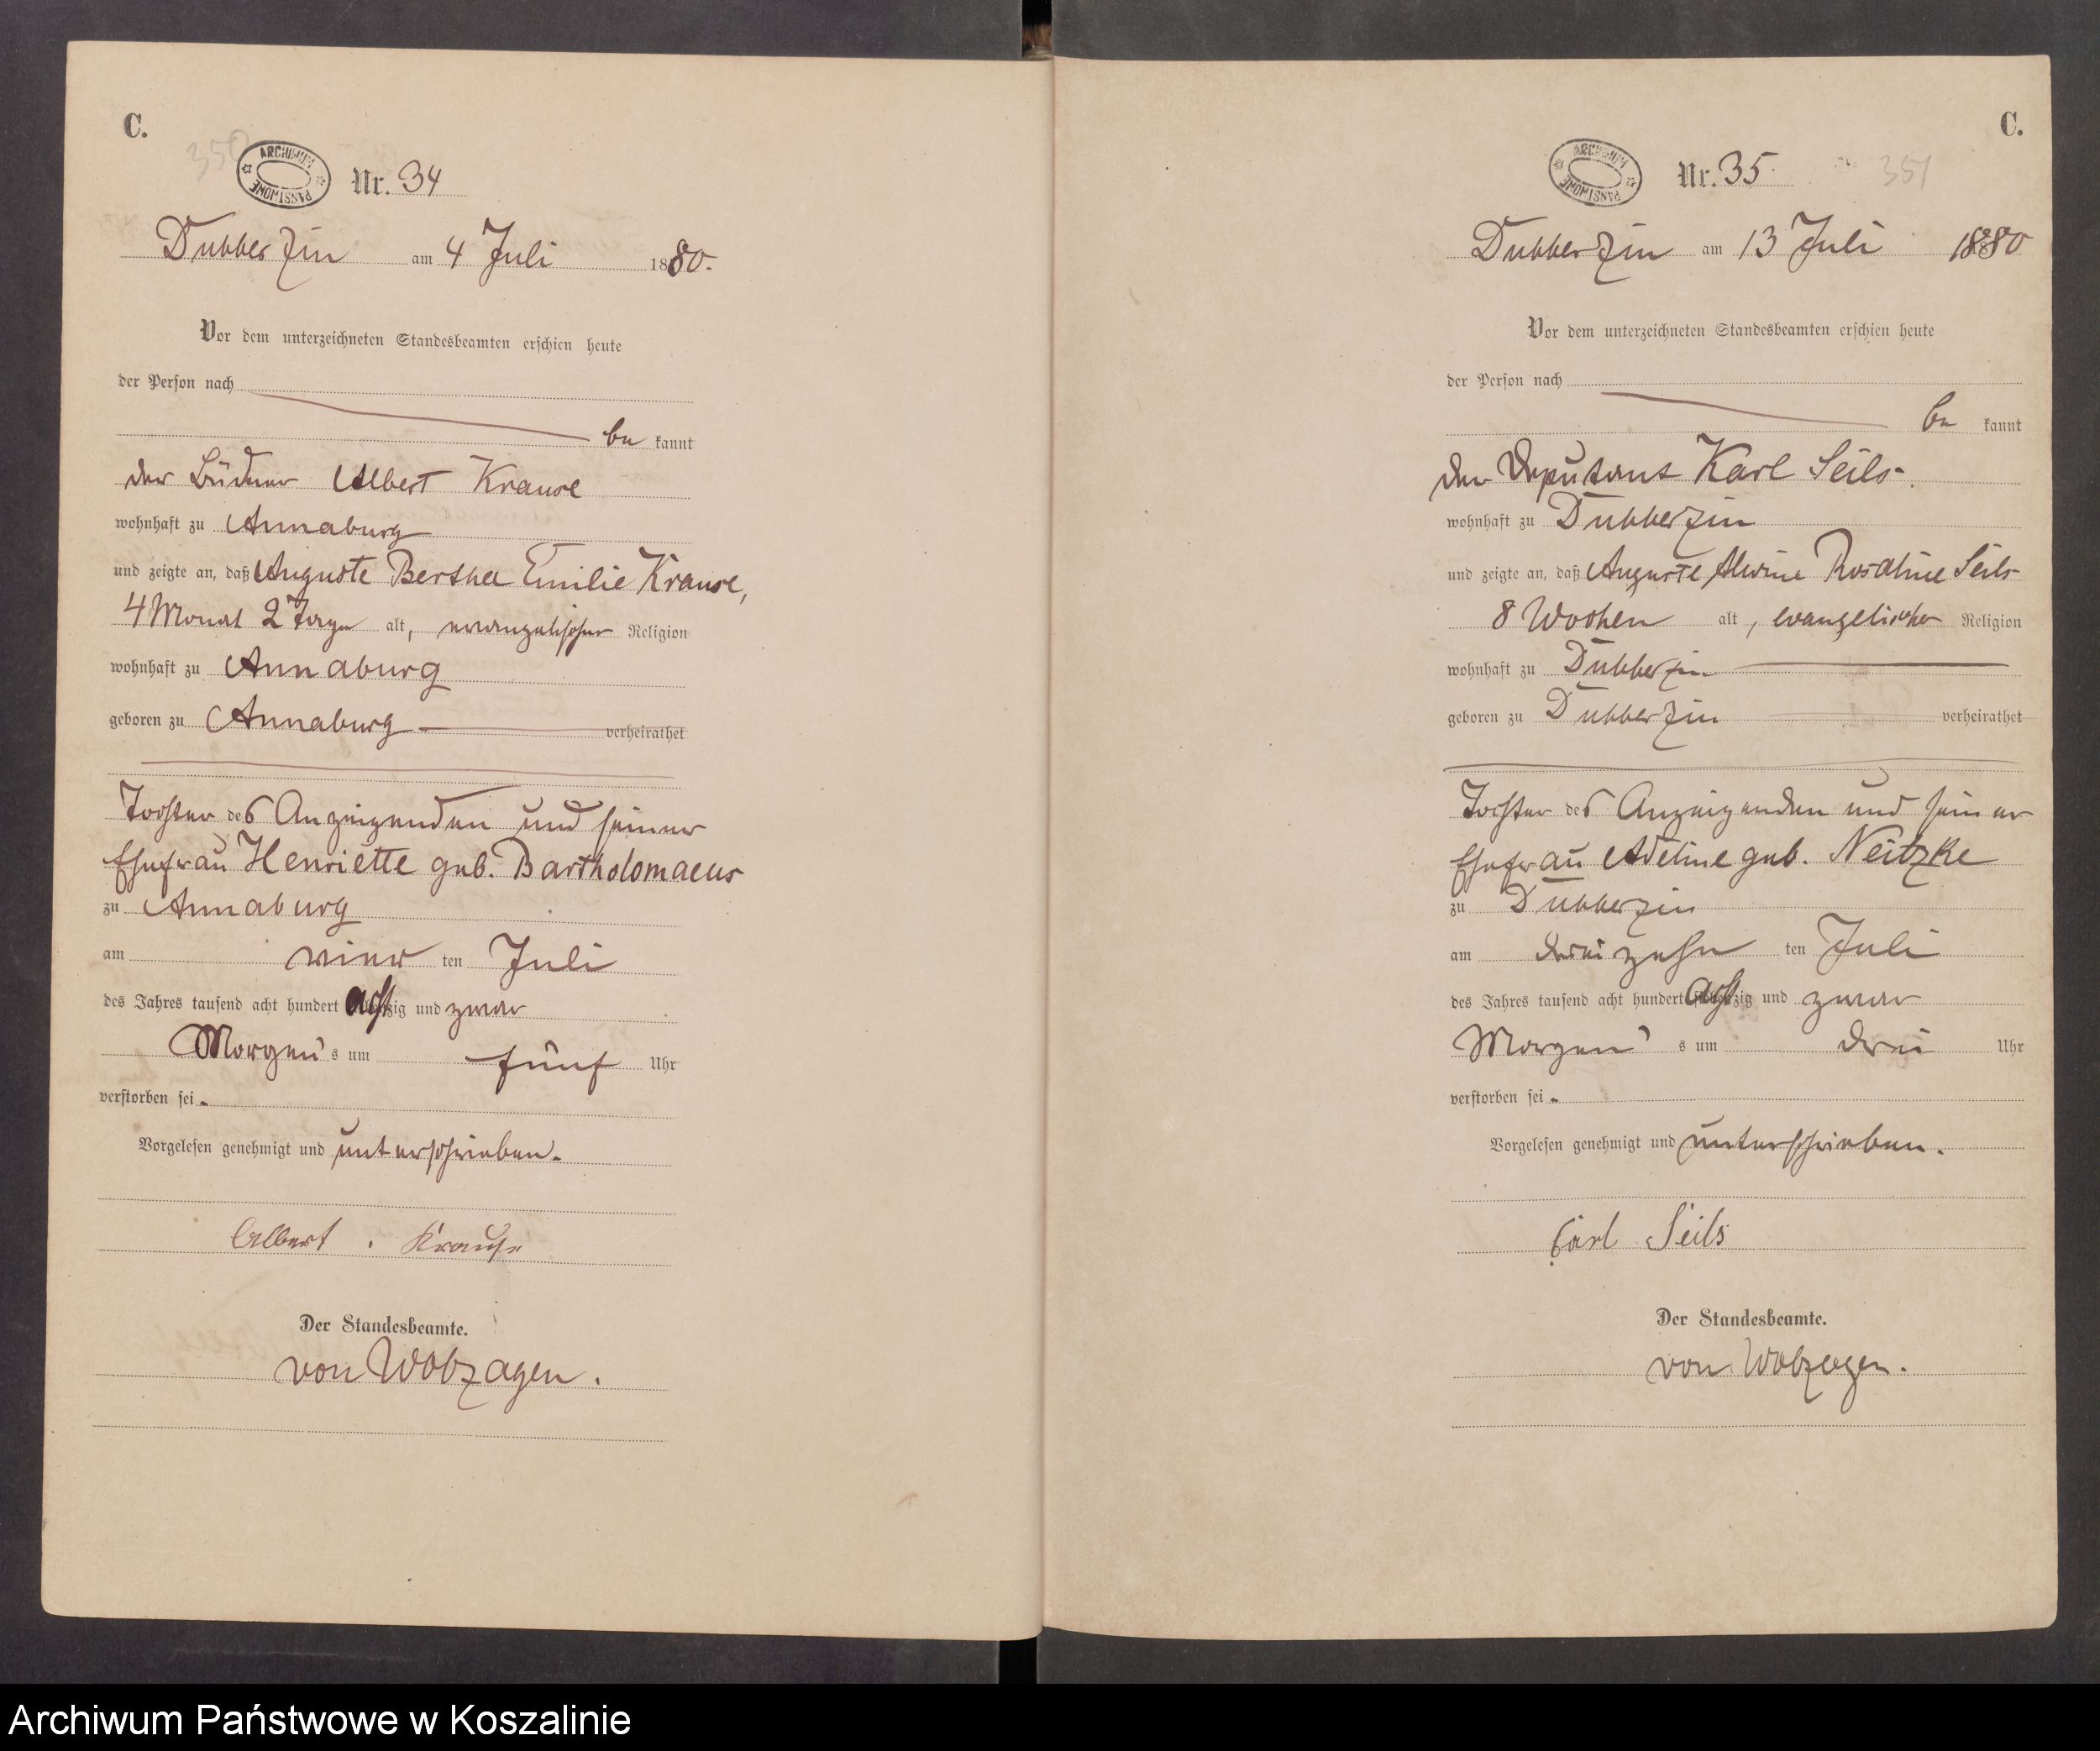 C.
350
ARCHIWUM PAŃSTWOWE
Nr. 34
Dubberzin am 4 Juli 1880.
Vor dem unterzeichneten Standesbeamten erschien heute
der Person nach
be kannt
der Büdner Albert Krause
wohnhaft zu Annaburg
und zeigte an, daß Auguste Bertha Emilie Krause,
4 Monat 2 Tage alt, evangelischer Religion
wohnhaft zu Annaburg
geboren zu Annaburg verheirathet
Tochter des Anzeigenden und seiner
Ehefrau Henriette geb. Bartholomaeus
zu Annaburg
am vier ten Juli
des Jahres tausend acht hundert achtzig und zwar
Morgen's um fünf Uhr
verstorben sei.
Vorgelesen genehmigt und unterschrieben.
Albert Krause
Der Standesbeamte.
von Wobzagen.
C.
351
ARCHIWUM PAŃSTWOWE
Nr. 35
Dubberzin am 13 Juli 1880
Vor dem unterzeichneten Standesbeamten erschien heute
der Person nach
be kannt
der Deputant Karl Seils.
wohnhaft zu Dubberzin
und zeigte an, daß Auguste Alwine Rosaline Seils
8 Wochen alt, evangelischer Religion
wohnhaft zu Dubberzin
geboren zu Dubberzin verheirathet
Tochter des Anzeigenden und seiner
Ehefrau Adeline geb. Neitzke
zu Dubberzin
am dreizehn ten Juli
des Jahres tausend acht hundert achtzig und zwar
Morgen's um drei Uhr
verstorben sei.
Vorgelesen genehmigt und unterschrieben.
Carl Seils
Der Standesbeamte.
von Wobzagen.
Archiwum Państwowe w Koszalinie